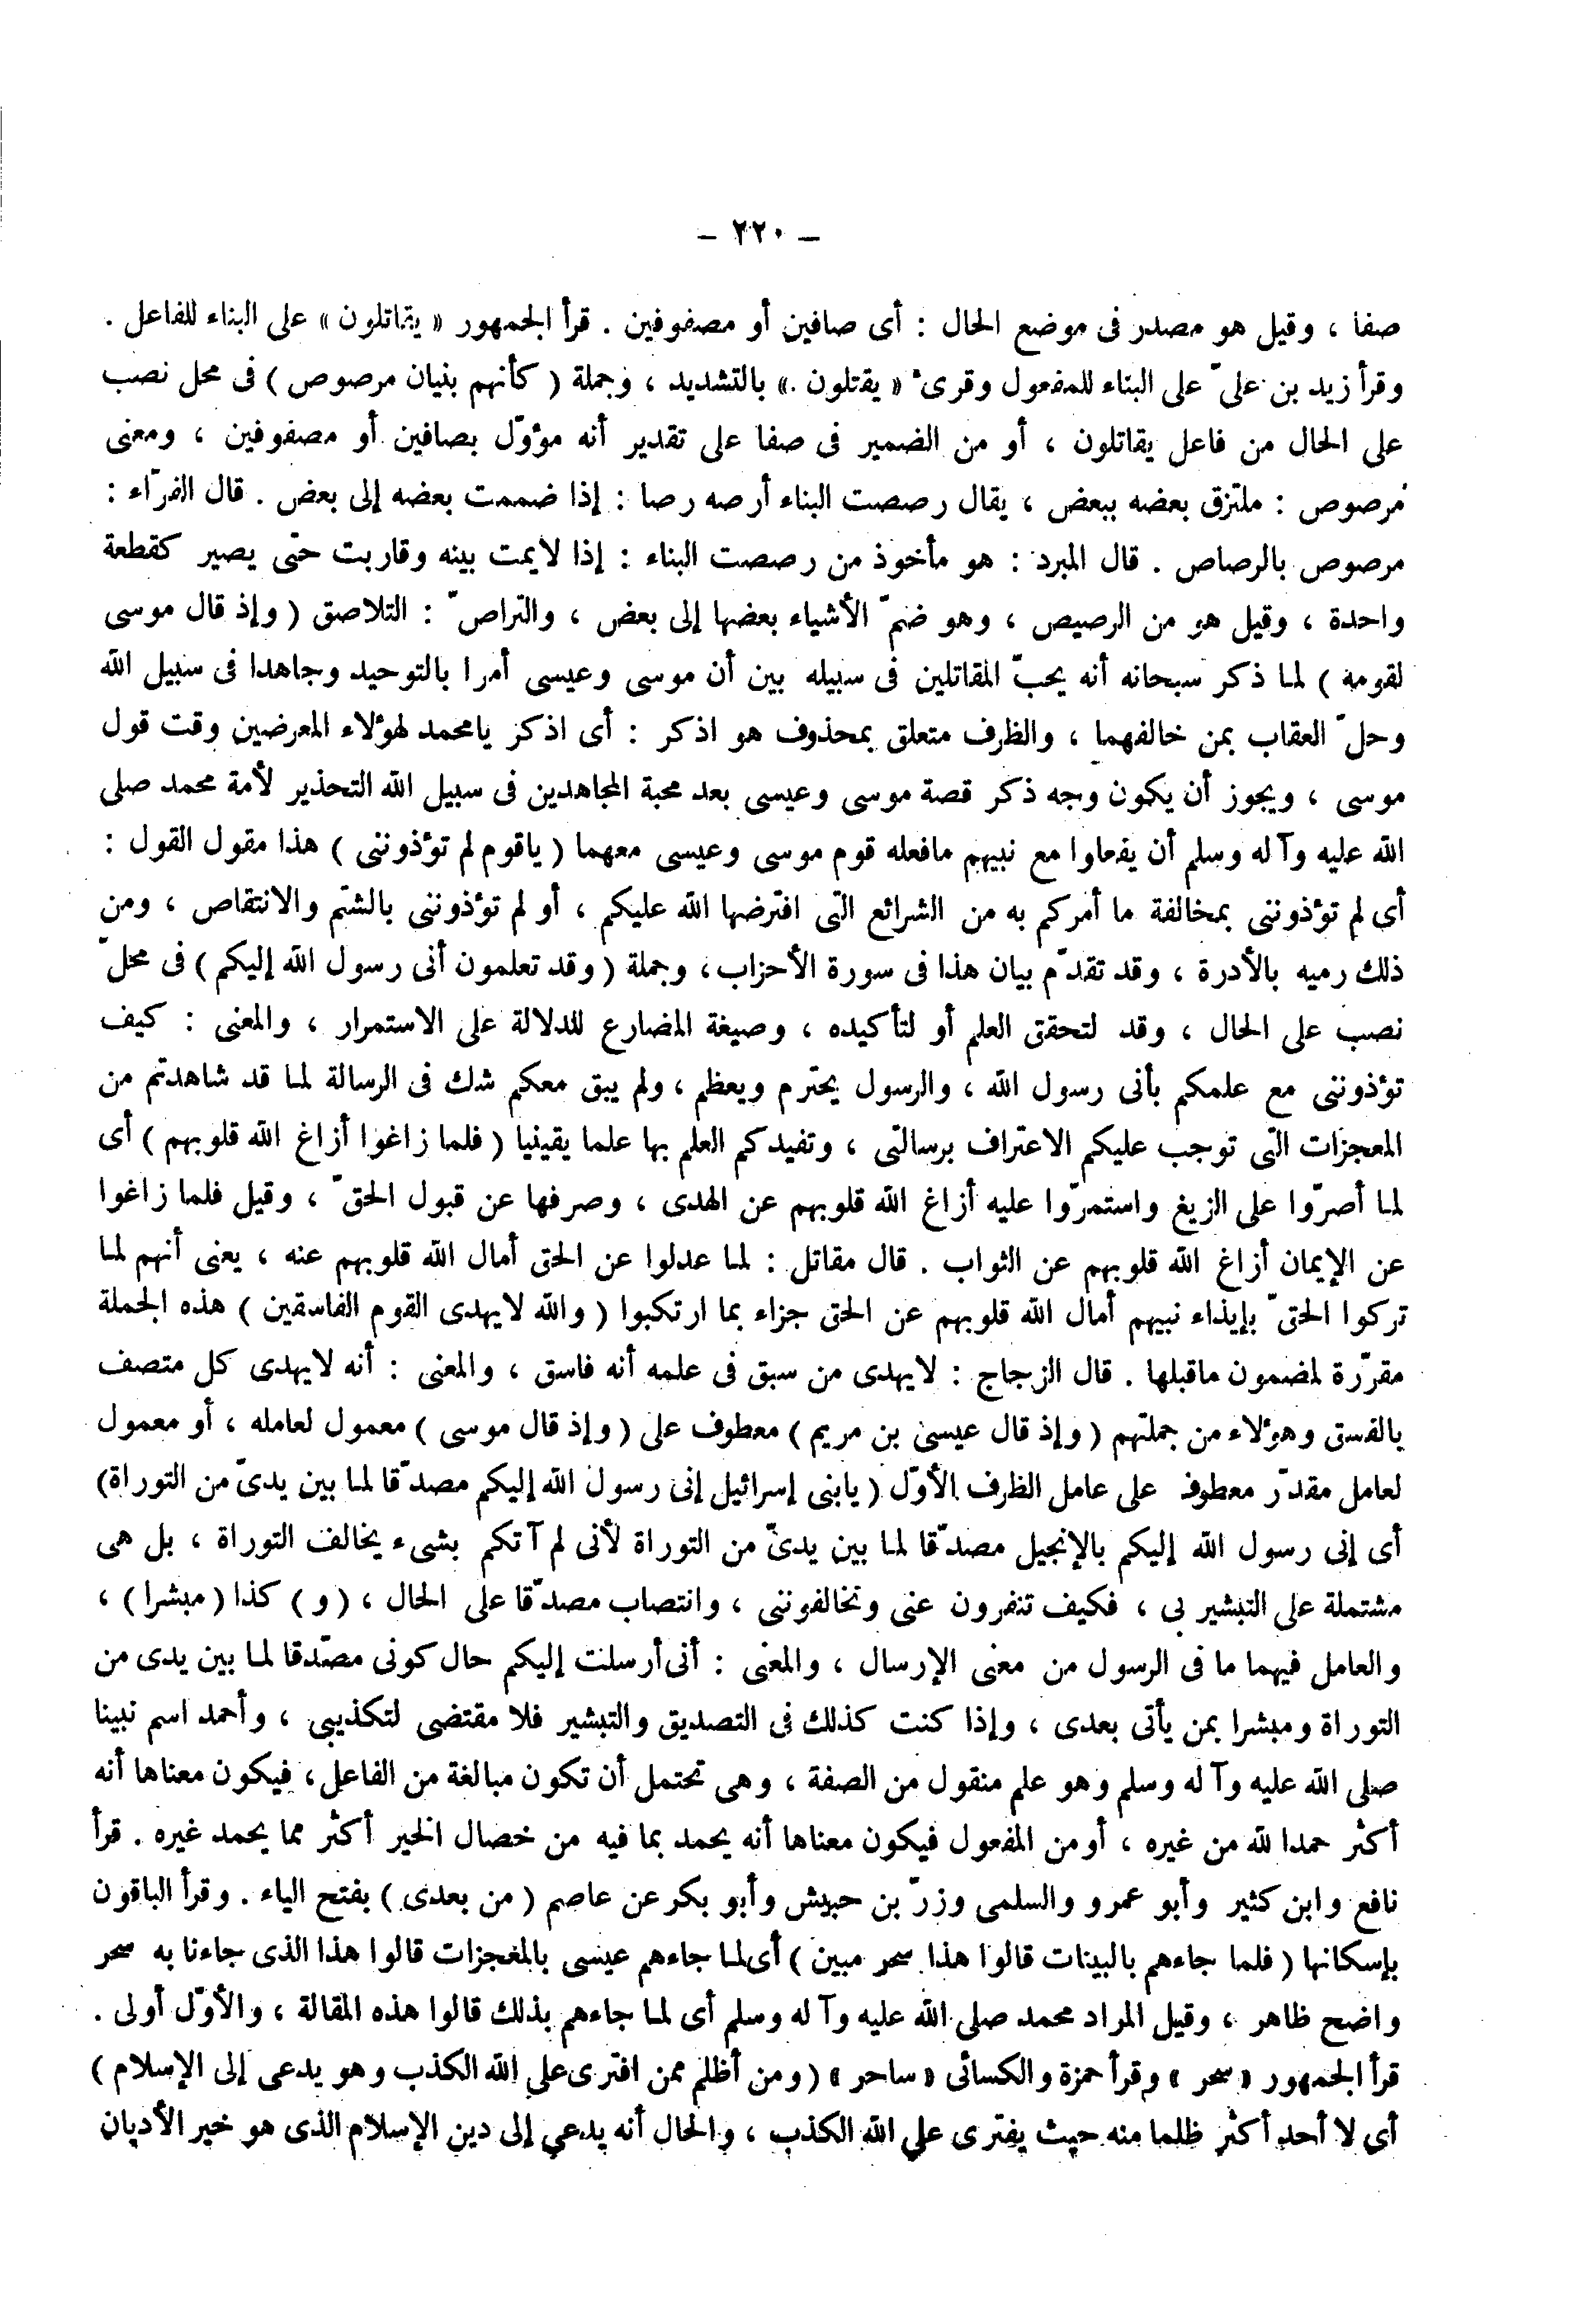 – ٢٢٠ –
صفا ، وقيل هو مصدر فى موضع الحال : أى صافين أو مصفوفين . قرأ الجمهور « يقاتلون » على البناء للفاعل .
وقرأ زيد بن علىّ على البناء للمفعول وقرئ « يقتلون » بالتشديد ، وجملة ( كأنهم بنيان مرصوص ) فى محل نصب
على الحال من فاعل يقاتلون ، أو من الضمير فى صفا على تقدير أنه مؤوّل بصافين أو مصفوفين ، ومعنى
مرصوص : ملتزق بعضه ببعض ، يقال رصصت البناء أرصه رصا : إذا ضممت بعضه إلى بعض . قال الفرّاء :
مرصوص بالرصاص . قال المبرد : هو مأخوذ من رصصت البناء : إذا لايمت بينه وقاربت حتى يصير كقطعة
واحدة ، وقيل هو من الرصيص ، وهو ضمّ الأشياء بعضها إلى بعض ، والتراصّ : التلاصق ( وإذ قال موسى
لقومه ) لما ذكر سبحانه أنه يحبّ المقاتلين فى سبيله بين أن موسى وعيسى أمرا بالتوحيد وجاهدا فى سبيل الله
وحلّ العقاب بمن خالفهما ، والظرف متعلق بمحذوف هو اذكر : أى اذكر يامحمد لهؤلاء المعرضين وقت قول
موسى ، ويجوز أن يكون وجه ذكر قصة موسى وعيسى بعد محبة المجاهدين فى سبيل الله التحذير لأمة محمد صلى
الله عليه وآ له وسلم أن يفعلوا مع نبيهم مافعله قوم موسى وعيسى معهما ( ياقوم لم تؤذوننى ) هذا مقول القول :
أى لم تؤذوننى بمخالفة ما أمركم به من الشرائع التى افترضها الله عليكم ، أو لم تؤذوننى بالشتم والانتقاص ، ومن
ذلك رميه بالأدرة ، وقد تقدّم بيان هذا فى سورة الأحزاب، وجملة ( وقد تعلمون أنى رسول الله إليكم ) فى محلّ
نصب على الحال ، وقد لتحقق العلم أو لتأكيده ، وصيغة المضارع للدلالة على الاستمرار ، والمعنى : كيف
تؤذوننى مع علمكم بأنى رسول الله ، والرسول يحترم ويعظم ، ولم يبق معكم شك فى الرسالة لما قد شاهدتم من
المعجزات التى توجب عليكم الاعتراف برسالتى ، وتفيدكم العلم بها علما يقينيا ( فلما زاغوا أزاغ الله قلوبهم ) أى
لما أصرّوا على الزيغ واستمرّوا عليه أزاغ الله قلوبهم عن الهدى ، وصرفها عن قبول الحقّ ، وقيل فلما زاغوا
عن الإيمان أزاغ الله قلوبهم عن الثواب . قال مقاتل : لما عدلوا عن الحق أمال الله قلوبهم عنه ، يعنى أنهم لما
تركوا الحقّ بإيذاء نبيهم أمال الله قلوبهم عن الحق جزاء بما ارتكبوا ( والله لايهدى القوم الفاسقين ) هذه الجملة
مقرّرة لمضمون ماقبلها . قال الزجاج : لايهدى من سبق فى علمه أنه فاسق ، والمعنى : أنه لايهدى كل متصف
بالفسق وهؤلاء من جملتهم ( وإذ قال عيسى بن مريم ) معطوف على ( وإذ قال موسى ) معمول لعامله ، أو معمول
لعامل مقدّر معطوف على عامل الظرف الأوّل ( يابنى إسرائيل إنى رسول الله إليكم مصدّقا لما بين يدىّ من التوراة)
أى إنى رسول الله إليكم بالإنجيل مصدّقا لما بين يدىّ من التوراة لأنى لم آتكم بشىء يخالف التوراة ، بل هى
مشتملة على التبشير بى ، فكيف تنفرون عنى وتخالفوننى ، وانتصاب مصدّقا على الحال ، ( و ) كذا ( مبشرا ) ،
والعامل فيهما ما فى الرسول من معنى الإرسال ، والمعنى : أنى أرسلت إليكم حال كونى مصدّقا لما بين يدى من
التوراة ومبشرا بمن يأتى بعدى ، وإذا كنت كذلك فى التصديق والتبشير فلا مقتضى لتكذيبى ، وأحمد اسم نبينا
صلى الله عليه وآ له وسلم وهو علم منقول من الصفة ، وهى تحتمل أن تكون مبالغة من الفاعل، فيكون معناها أنه
أكثر حمدا لله من غيره ، أو من المفعول فيكون معناها أنه يحمد بما فيه من خصال الخير أكثر مما يحمد غيره . قرأ
نافع وابن كثير وأبو عمرو والسلمى وزرّ بن حبيش وأبو بكر عن عاصم ( من بعدى ) بفتح الياء . وقرأ الباقون
بإسكانها ( فلما جاءهم بالبينات قالوا هذا سحر مبين ) أى لما جاءهم عيسى بالمعجزات قالوا هذا الذى جاءنا به سحر
واضح ظاهر ، وقيل المراد محمد صلى الله عليه وآ له وسلم أى لما جاءهم بذلك قالوا هذه المقالة ، والأوّل أولى .
قرأ الجمهور « سحر » وقرأ حمزة والكسائى « ساحر » ( ومن أظلم ممن افترى على الله الكذب وهو يدعى إلى الإسلام )
أى لا أحد أكثر ظلما منه حيث يفترى على الله الكذب ، والحال أنه يدعى إلى دين الإسلام الذى هو خير الأديان